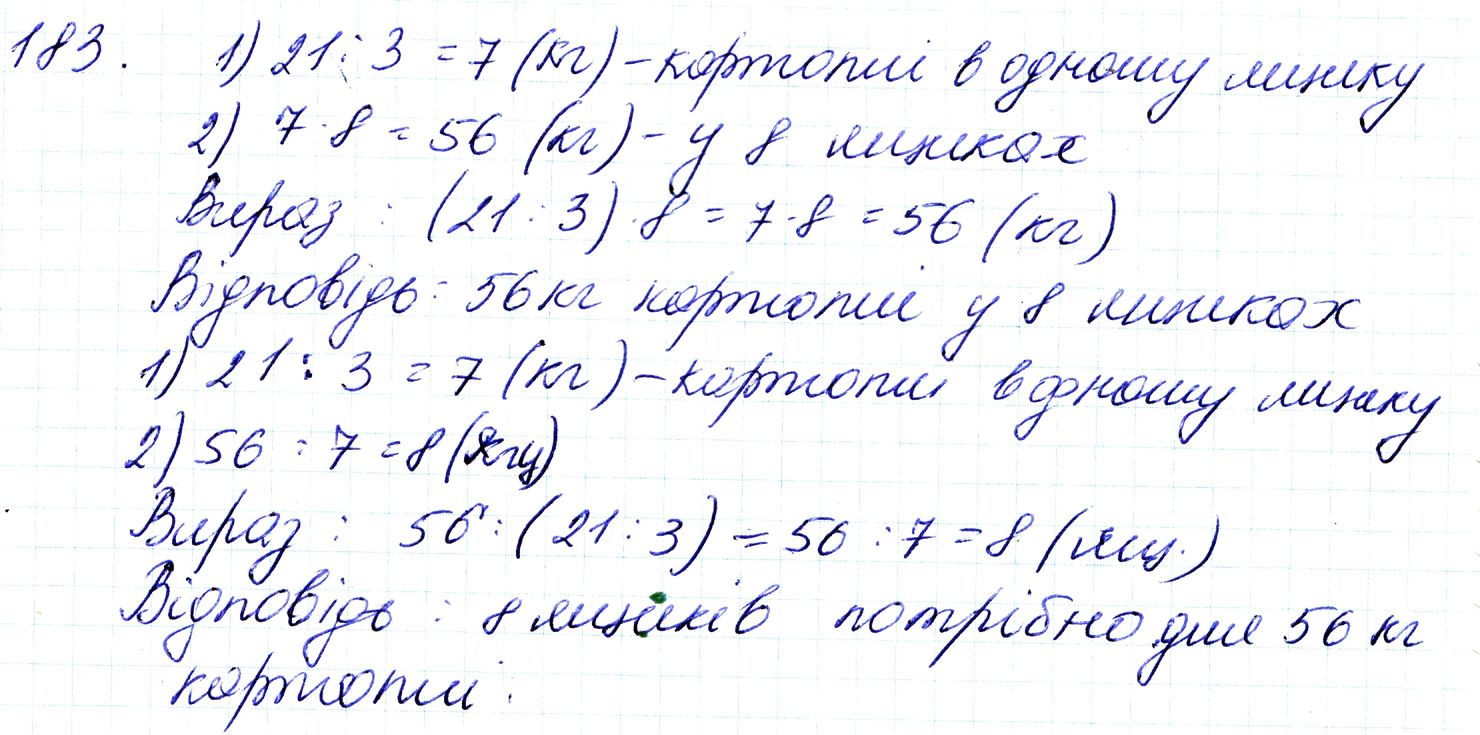 183. 1) 21 : 3 = 7 (кг) – картоплі в одному ящику
2) 7 · 8 = 56 (кг) – у 8 ящиках
Вираз : (21 : 3) · 8 = 7 · 8 = 56 (кг)
Відповідь : 56 кг картоплі у 8 ящиках
1) 21 : 3 = 7 (кг) – картоплі в одному ящику
2) 56 : 7 = 8 (ящ)
Вираз : 56 : (21 : 3) = 56 : 7 = 8 (ящ.)
Відповідь : 8 ящиків потрібно для 56 кг
картоплі.